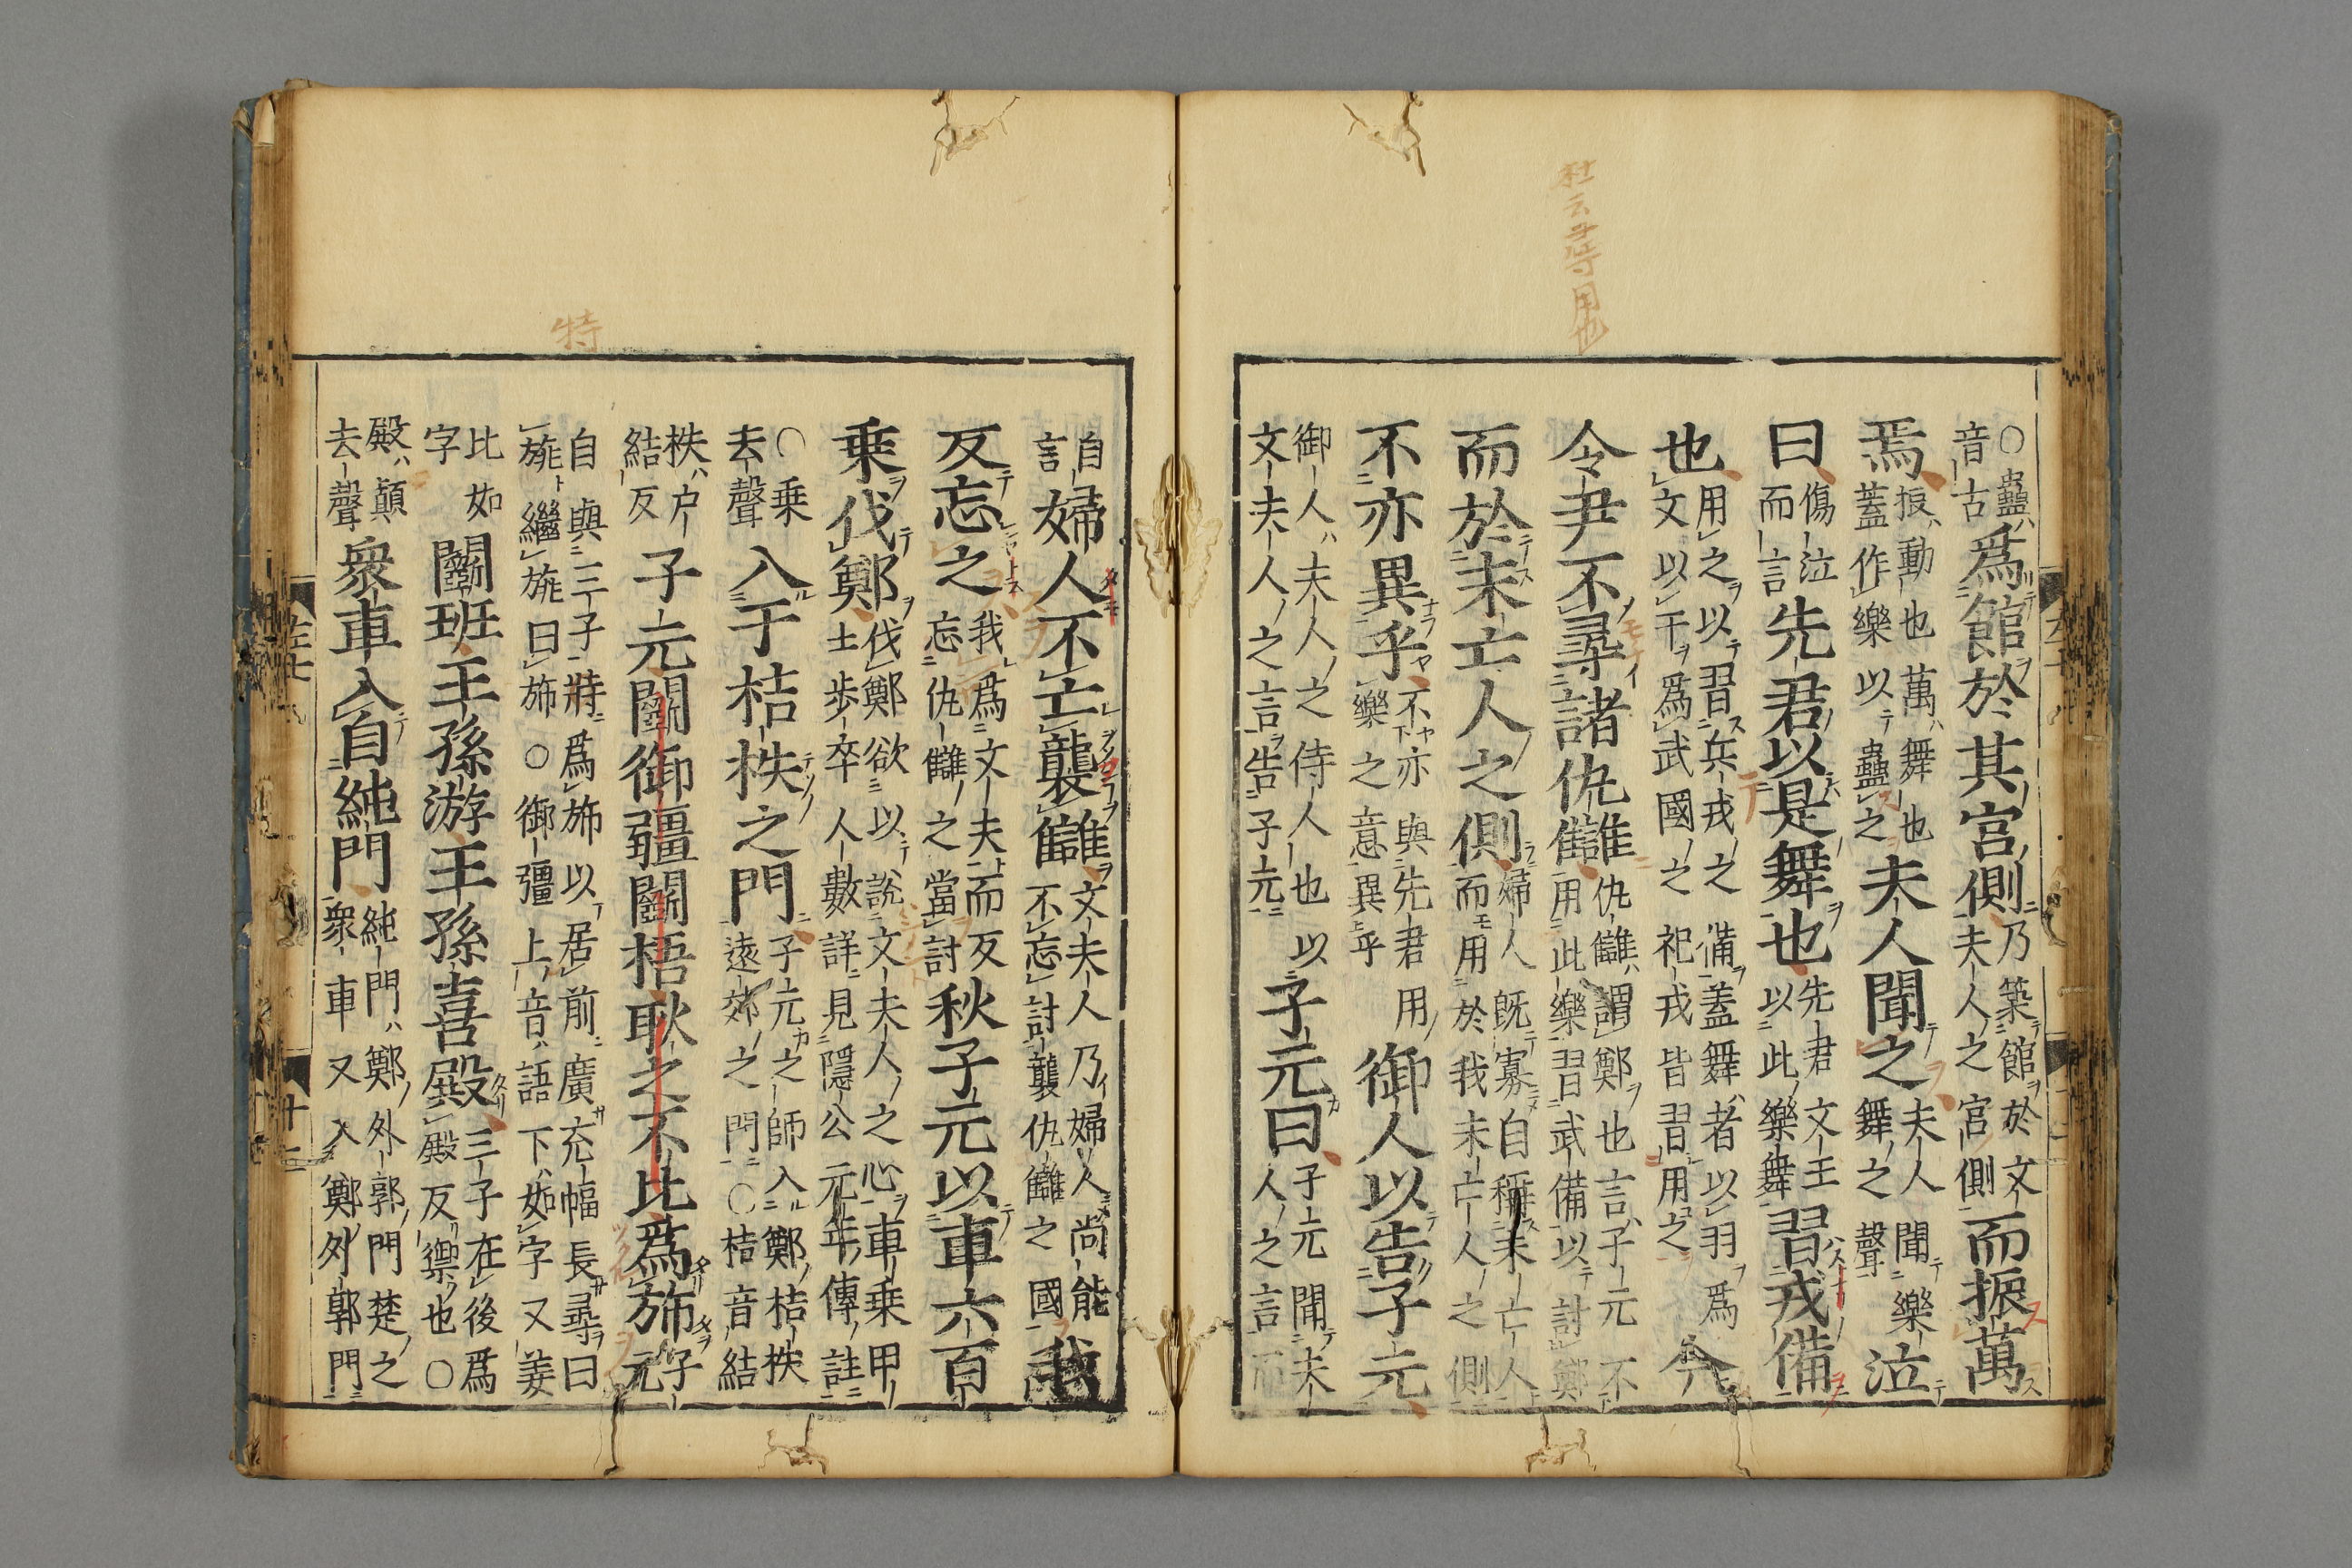 杜云尋用也
○蠱音古爲館於其宮側乃築館於文夫人之宮側而振萬
焉振動也萬舞也蓋作樂以蠱之夫人聞之夫人聞樂舞之聲泣
曰傷泣而言先君以是舞也先君文王以此樂舞習戎備
也用之以習兵戎之備蓋舞者以羽爲文以干爲武國之祀戎皆習用之今
令尹不尋諸仇讎仇讎謂鄭也言子元不用此樂習武備以討鄭
而於未亡人之側婦人既寡自稱未亡人而用於我未亡人之側
不亦異乎不亦與先君用樂之意異乎御人以告子元
御人夫人之侍人也以文夫人之言告子元子元曰子元聞夫人之言而
自言婦人不亡襲讎文夫人乃婦人尚能不忘討襲仇讎之國我
反忘之我爲文夫而反忘仇讎之當討秋子元以車六百
乘伐鄭伐鄭欲以說文夫人之心車乘甲士步卒人數詳見隱公元年傳註
○乘去聲入于桔柣之門子元之師入鄭桔柣遠郊之門○桔音結
柣戶結反子元鬪御疆鬪梧耿之不比爲旆子元
自與三子特爲旆以居前廣充幅長尋曰旐繼旐曰旆○御彊上音語下如字又姜
比如字鬪班王孫游王孫喜殿三子在後爲殿反禦也○
殿顛去聲衆車入自純門純門鄭外郭門楚之衆車又入鄭外郭門
特
左七
十二